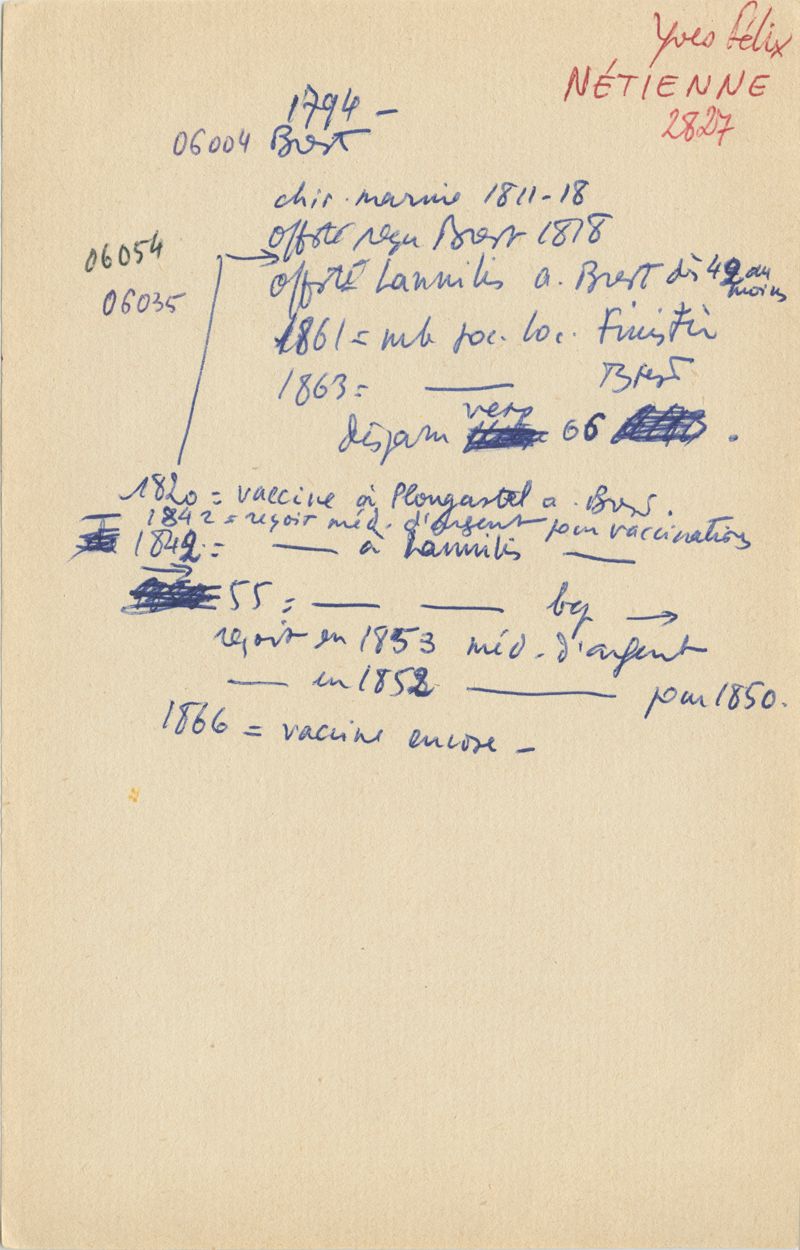 Yves Félix
NÉTIENNE
2827
1794 -
06004 Brest
chir. marine 1811-18
offsté reçu Brest 1818
06054
offsté Lannilis a. Brest dès 42 au moins
06035
1861 = mb soc. loc. Finistèr
1863 = — Brest
disparu vers 66 .
1820 = vaccine à Plougastel a. Brest.
1842 = reçoit méd. d'argent pour vaccinations
1842 = — à Lannilis —
55 = — — bcp →
reçoit en 1853 méd. d'argent
— en 1852 — pour 1850.
1866 = vaccine encore -